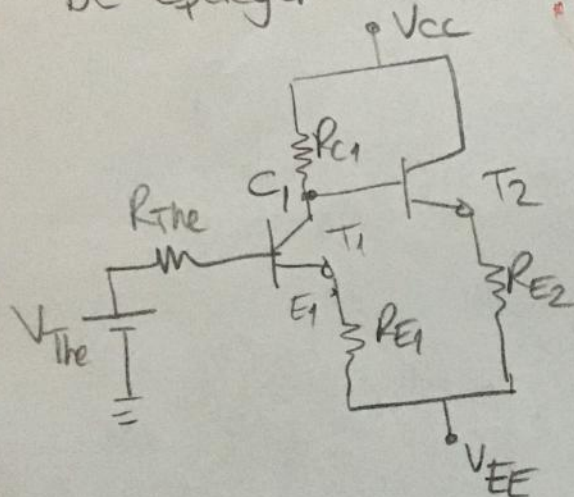 VCC
RC1
C1
T2
RThe
T1
RE2
E1
RE1
VThe
VEE